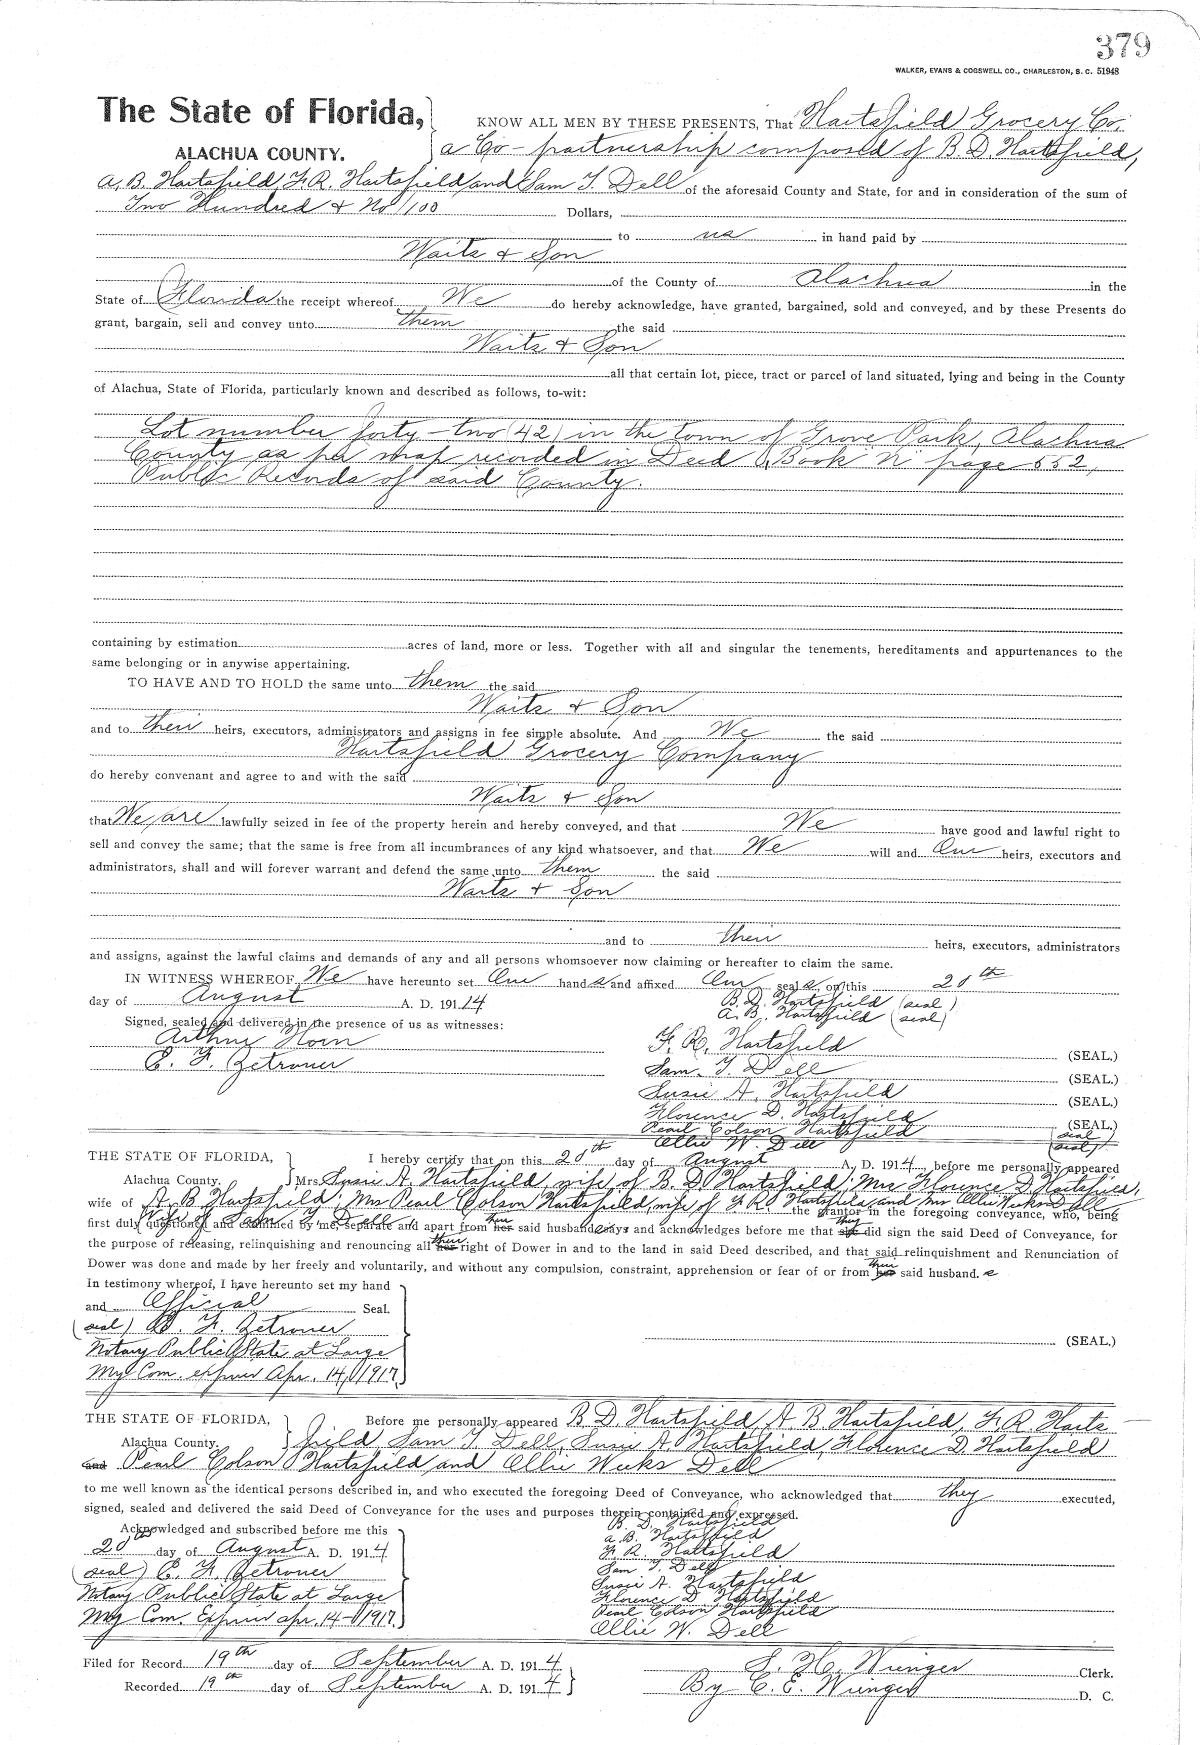 379
WALKER, EVANS & COGSWELL CO., CHARLESTON, S. C. 51948
The State of Florida,
ALACHUA COUNTY.
KNOW ALL MEN BY THESE PRESENTS, That Hartsfield Grocery Co.
a Co-partnership composed of B. D. Hartsfield,
A. B. Hartsfield, F. R. Hartsfield and Sam T. Dell of the aforesaid County and State, for and in consideration of the sum of
Two Hundred & No/100 Dollars,
to us in hand paid by
Waits & Son
of the County of Alachua in the
State of Florida the receipt whereof We do hereby acknowledge, have granted, bargained, sold and conveyed, and by these Presents do
grant, bargain, sell and convey unto them the said
Waits & Son
all that certain lot, piece, tract or parcel of land situated, lying and being in the County
of Alachua, State of Florida, particularly known and described as follows, to-wit:
Lot number forty-two (42) in the town of Grove Park, Alachua
County as per map recorded in Deed Book "N" page 552,
Public Records of said County.
containing by estimation acres of land, more or less. Together with all and singular the tenements, hereditaments and appurtenances to the
same belonging or in anywise appertaining.
TO HAVE AND TO HOLD the same unto them the said
Waits & Son
and to their heirs, executors, administrators and assigns in fee simple absolute. And We the said
Hartsfield Grocery Company
do hereby convenant and agree to and with the said
Waits & Son
that We are lawfully seized in fee of the property herein and hereby conveyed, and that We have good and lawful right to
sell and convey the same; that the same is free from all incumbrances of any kind whatsoever, and that We will and Our heirs, executors and
administrators, shall and will forever warrant and defend the same unto them the said
Waits & Son
and to their heirs, executors, administrators
and assigns, against the lawful claims and demands of any and all persons whomsoever now claiming or hereafter to claim the same.
IN WITNESS WHEREOF, We have hereunto set Our hand s and affixed Our seal s, on this 20th
day of August A. D. 1914
B. D. Hartsfield (seal)
A. B. Hartsfield (seal)
Signed, sealed and delivered in the presence of us as witnesses:
Arthur Horn
E. F. Zetrouer
F. R. Hartsfield (SEAL.)
Sam. T. Dell (SEAL.)
Susie A. Hartsfield (SEAL.)
Florence D. Hartsfield (SEAL.)
Pearl Colson Hartsfield (seal)
Ollie W. Dell (seal)
THE STATE OF FLORIDA,
Alachua County.
I hereby certify that on this 20th day of August A. D. 1914, before me personally appeared
Mrs. Susie A. Hartsfield, wife of B. D. Hartsfield; Mrs Florence D. Hartsfield,
wife of A. B. Hartsfield; Mrs Pearl Colson Hartsfield, wife of F. R. Hartsfield, and Mrs Ollie Weeks Dell
wife of Sam T. Dell the grantor in the foregoing conveyance, who, being
first duly questioned and examined by me, separate and apart from her their said husband s says and acknowledges before me that she they did sign the said Deed of Conveyance, for
the purpose of releasing, relinquishing and renouncing all her their right of Dower in and to the land in said Deed described, and that said relinquishment and Renunciation of
Dower was done and made by her freely and voluntarily, and without any compulsion, constraint, apprehension or fear of or from her their said husband. s
In testimony whereof, I have hereunto set my hand
and Official Seal.
(seal) E. F. Zetrouer
Notary Public State at Large
My Com. expires Apr. 14, 1917.
(SEAL.)
THE STATE OF FLORIDA,
Alachua County.
Before me personally appeared B. D. Hartsfield, A. B. Hartsfield, F. R. Harts
field, Sam T. Dell, Susie A. Hartsfield, Florence D. Hartsfield
and Pearl Colson Hartsfield and Ollie Weeks Dell
to me well known as the identical persons described in, and who executed the foregoing Deed of Conveyance, who acknowledged that they executed,
signed, sealed and delivered the said Deed of Conveyance for the uses and purposes therein contained and expressed.
Acknowledged and subscribed before me this
20th day of August A. D. 1914
(seal) E. F. Zetrouer
Notary Public State at Large
My Com. Expires Apr. 14-1917.
B. D. Hartsfield
A. B. Hartsfield
F. R. Hartsfield
Sam T. Dell
Susie A. Hartsfield
Florence D. Hartsfield
Pearl Colson Hartsfield
Ollie W. Dell
Filed for Record 19th day of September A. D. 1914
S. H. Wienges Clerk.
Recorded 19th day of September A. D. 1914
By C. E. Wienges D. C.